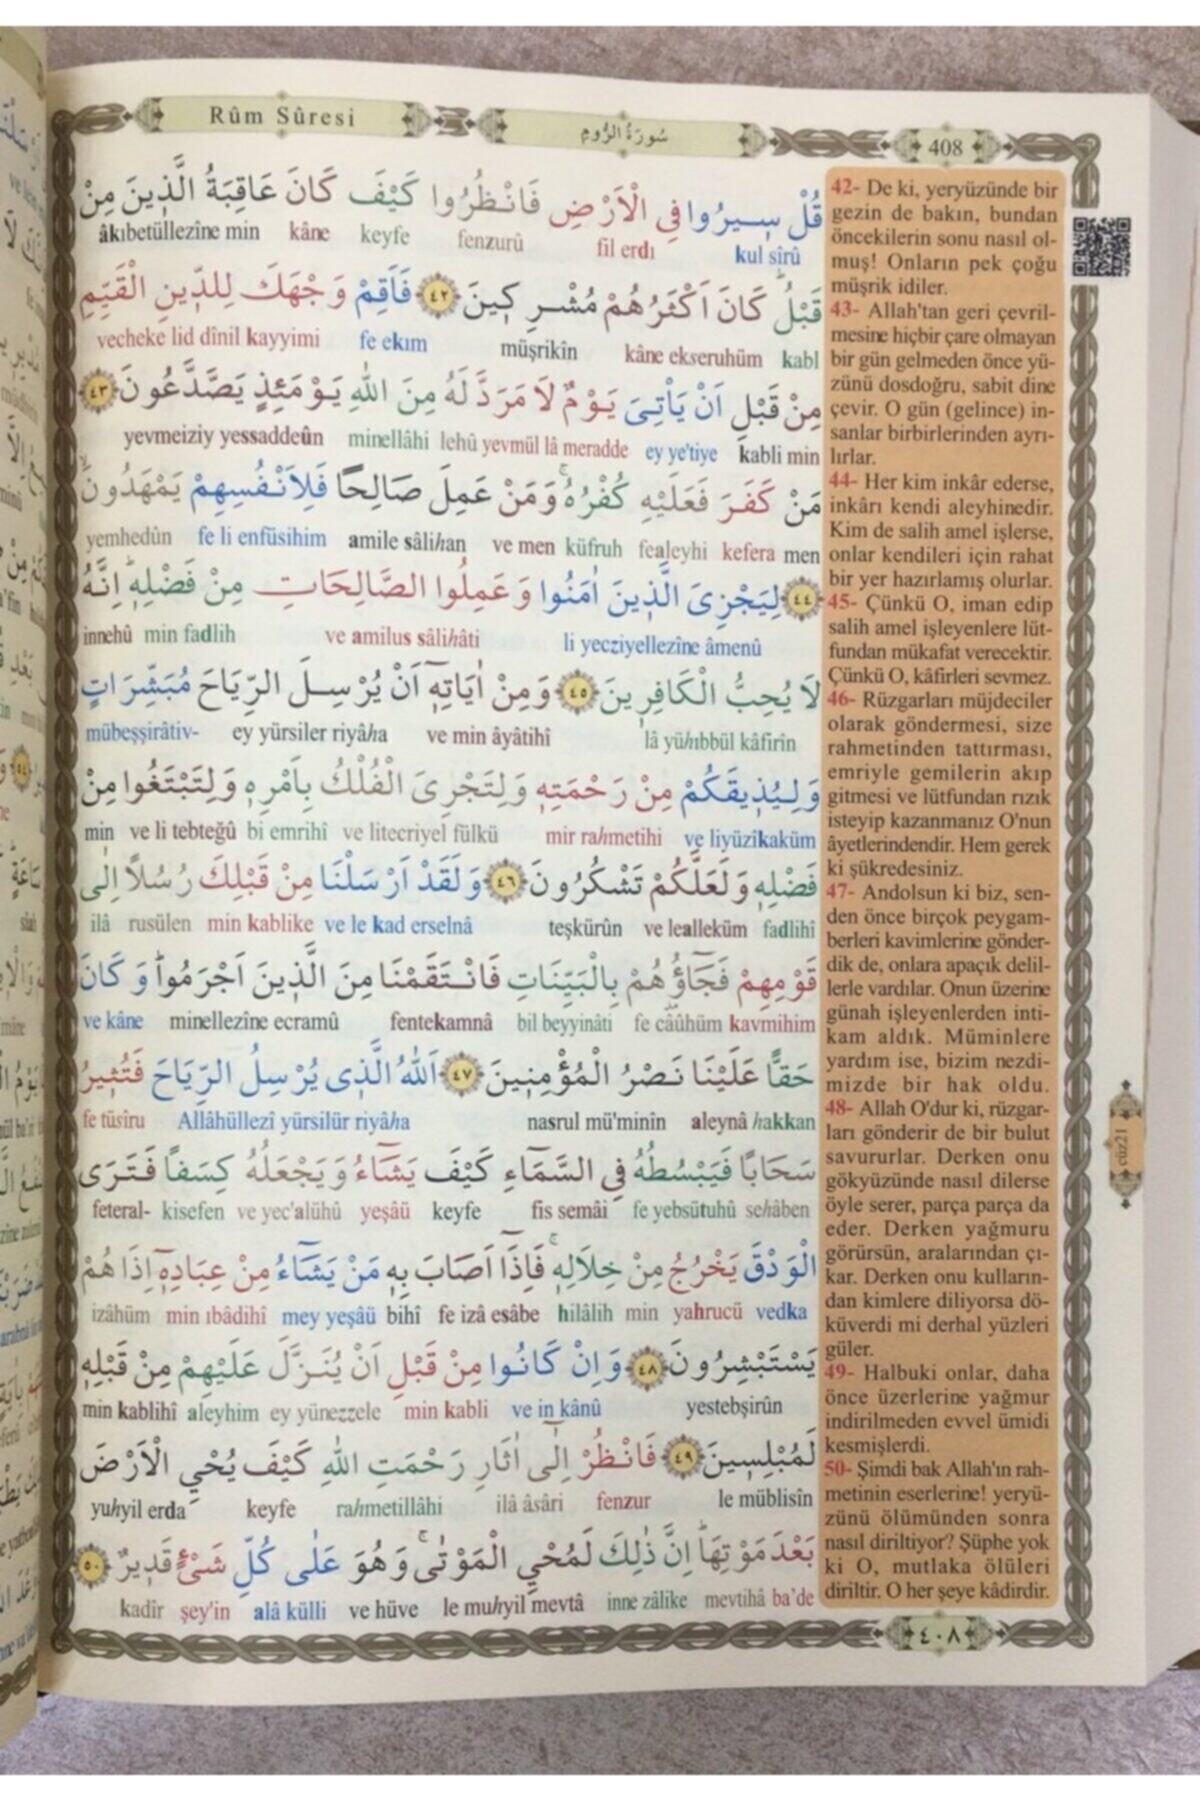 Rûm Sûresi
سُورَةُ الرُّومِ
408
قُلْ سٖيرُوا فِي الْاَرْضِ فَانْظُرُوا كَيْفَ كَانَ عَاقِبَةُ الَّذٖينَ مِنْ
âkıbetüllezîne min kâne keyfe fenzurû fil erdı kul sîrû
قَبْلُ كَانَ اَكْثَرُهُمْ مُشْرِكٖينَ ٤٢ فَاَقِمْ وَجْهَكَ لِلدّٖينِ الْقَيِّمِ
vecheke lid dînil kayyimi fe ekım müşrikîn kâne ekseruhüm kabl
مِنْ قَبْلِ اَنْ يَاْتِيَ يَوْمٌ لَا مَرَدَّ لَهُ مِنَ اللّٰهِ يَوْمَئِذٍ يَصَّدَّعُونَ ٤٣
yevmeiziy yessaddeûn minellâhi lehû yevmül lâ meradde ey ye'tiye kabli min
مَنْ كَفَرَ فَعَلَيْهِ كُفْرُهُ وَمَنْ عَمِلَ صَالِحًا فَلِاَنْفُسِهِمْ يَمْهَدُونَ
yemhedûn fe li enfüsihim amile sâlihan ve men küfruh fealeyhi kefera men
٤٤ لِيَجْزِيَ الَّذٖينَ اٰمَنُوا وَعَمِلُوا الصَّالِحَاتِ مِنْ فَضْلِهٖ اِنَّهُ
innehû min fadlih ve amilus sâlihâti li yecziyellezîne âmenû
لَا يُحِبُّ الْكَافِرٖينَ ٤٥ وَمِنْ اٰيَاتِهٖ اَنْ يُرْسِلَ الرِّيَاحَ مُبَشِّرَاتٍ
mübeşşirâtiv- ey yürsiler riyâha ve min âyâtihî lâ yühıbbül kâfirîn
وَلِيُذٖيقَكُمْ مِنْ رَحْمَتِهٖ وَلِتَجْرِيَ الْفُلْكُ بِاَمْرِهٖ وَلِتَبْتَغُوا مِنْ
min ve li tebteğû bi emrihî ve litecriyel fülkü mir rahmetihi ve liyüzîkaküm
فَضْلِهٖ وَلَعَلَّكُمْ تَشْكُرُونَ ٤٦ وَلَقَدْ اَرْسَلْنَا مِنْ قَبْلِكَ رُسُلًا اِلٰى
ilâ rusülen min kablike ve le kad erselnâ teşkürûn ve lealleküm fadlihî
قَوْمِهِمْ فَجَاؤُهُمْ بِالْبَيِّنَاتِ فَانْتَقَمْنَا مِنَ الَّذٖينَ اَجْرَمُوا وَكَانَ
ve kâne minellezîne ecramû fentekamnâ bil beyyinâti fe câûhüm kavmihim
حَقًّا عَلَيْنَا نَصْرُ الْمُؤْمِنٖينَ ٤٧ اَللّٰهُ الَّذٖى يُرْسِلُ الرِّيَاحَ فَتُثٖيرُ
fe tüsîru Allâhüllezî yürsilür riyâha nasrul mü'minîn aleynâ hakkan
سَحَابًا فَيَبْسُطُهُ فِي السَّمَاءِ كَيْفَ يَشَاءُ وَيَجْعَلُهُ كِسَفًا فَتَرَى
feteral- kisefen ve yec'alühû yeşâü keyfe fis semâi fe yebsütuhû sehâben
الْوَدْقَ يَخْرُجُ مِنْ خِلَالِهٖ فَاِذَا اَصَابَ بِهٖ مَنْ يَشَاءُ مِنْ عِبَادِهٖ اِذَا هُمْ
izâhüm min ıbâdihî mey yeşâü bihî fe izâ esâbe hilâlih min yahrucü vedka
يَسْتَبْشِرُونَ ٤٨ وَاِنْ كَانُوا مِنْ قَبْلِ اَنْ يُنَزَّلَ عَلَيْهِمْ مِنْ قَبْلِهٖ
min kablihî aleyhim ey yünezzele min kabli ve in kânû yestebşirûn
لَمُبْلِسٖينَ ٤٩ فَانْظُرْ اِلٰى اٰثَارِ رَحْمَتِ اللّٰهِ كَيْفَ يُحْيِ الْاَرْضَ
yuhyil erda keyfe rahmetillâhi ilâ âsâri fenzur le müblisîn
بَعْدَ مَوْتِهَا اِنَّ ذٰلِكَ لَمُحْيِ الْمَوْتٰى وَهُوَ عَلٰى كُلِّ شَیْءٍ قَدٖيرٌ ٥٠
kadîr şey'in alâ külli ve hüve le muhyil mevtâ inne zâlike mevtihâ ba'de
٤٠٨
42- De ki, yeryüzünde bir
gezin de bakın, bundan
öncekilerin sonu nasıl ol-
muş! Onların pek çoğu
müşrik idiler.
43- Allah'tan geri çevril-
mesine hiçbir çare olmayan
bir gün gelmeden önce yü-
zünü dosdoğru, sabit dine
çevir. O gün (gelince) in-
sanlar birbirlerinden ayrı-
lırlar.
44- Her kim inkâr ederse,
inkârı kendi aleyhinedir.
Kim de salih amel işlerse,
onlar kendileri için rahat
bir yer hazırlamış olurlar.
45- Çünkü O, iman edip
salih amel işleyenlere lüt-
fundan mükafat verecektir.
Çünkü O, kâfirleri sevmez.
46- Rüzgarları müjdeciler
olarak göndermesi, size
rahmetinden tattırması,
emriyle gemilerin akıp
gitmesi ve lütfundan rızık
isteyip kazanmanız O'nun
âyetlerindendir. Hem gerek
ki şükredesiniz.
47- Andolsun ki biz, sen-
den önce birçok peygam-
berleri kavimlerine gönder-
dik de, onlara apaçık delil-
lerle vardılar. Onun üzerine
günah işleyenlerden inti-
kam aldık. Müminlere
yardım ise, bizim nezdi-
mizde bir hak oldu.
48- Allah O'dur ki, rüzgar-
ları gönderir de bir bulut
savururlar. Derken onu
gökyüzünde nasıl dilerse
öyle serer, parça parça da
eder. Derken yağmuru
görürsün, aralarından çı-
kar. Derken onu kulların-
dan kimlere diliyorsa dö-
küverdi mi derhal yüzleri
güler.
49- Halbuki onlar, daha
önce üzerlerine yağmur
indirilmeden evvel ümidi
kesmişlerdi.
50- Şimdi bak Allah'ın rah-
metinin eserlerine! yeryü-
zünü ölümünden sonra
nasıl diriltiyor? Şüphe yok
ki O, mutlaka ölüleri
diriltir. O her şeye kâdirdir.
cüz21